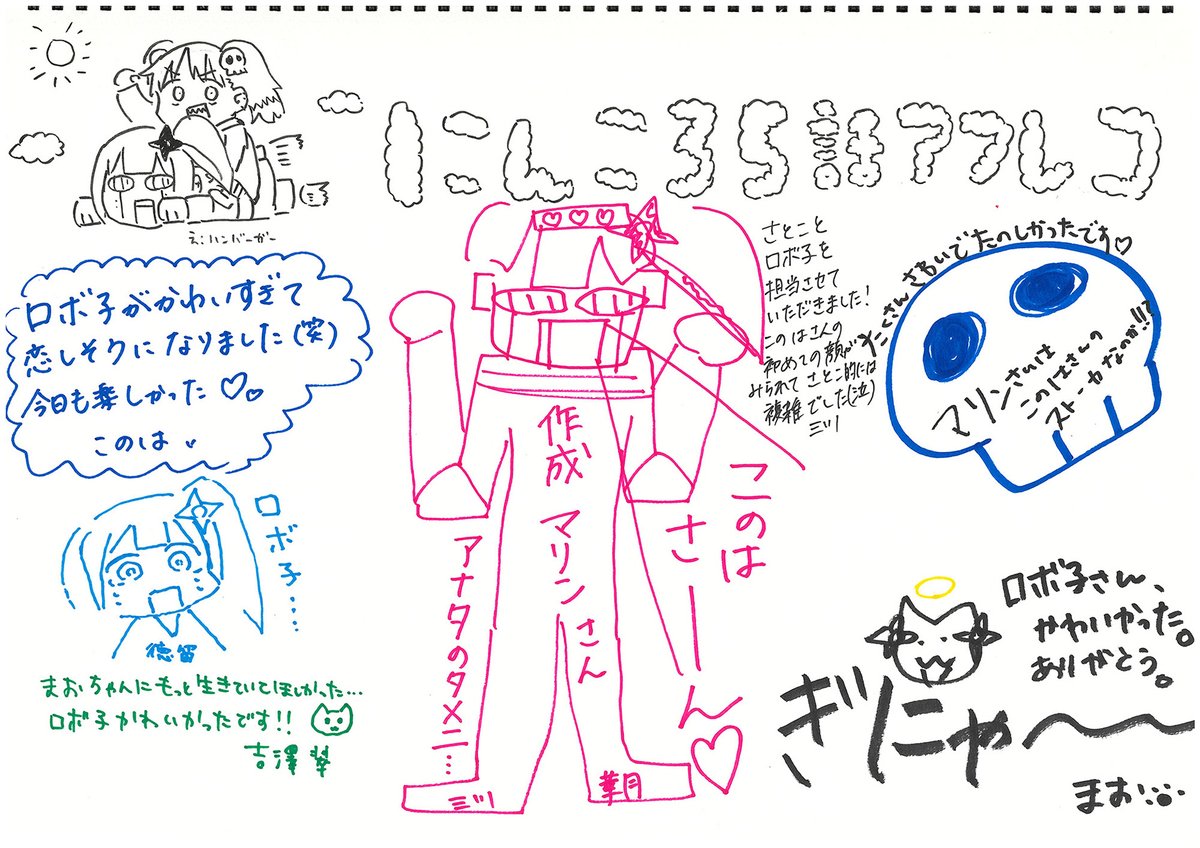 にんころ5話アフレコ
え:ハンバーガー
ロボ子がかわいすぎて
恋しそクになりました(笑)
今日も楽しかった♡♡
このは
ロボ子…
徳留
まおちゃんにもっと生きていてほしかった…
ロボ子かわいかったです!!
吉澤 翠
作成 マリンさん
アナタのタメニ…
三川
華月
このは
さーーん♡
さとこと
ロボ子を
担当させて
いただきました!
このはさんの
初めての顔が
みられて さとこ的には
複雑でした(泣)
三川
たくさんさわいでたのしかったです♡
マリンさんは
このはさんの
ストーカーなのか!!?
ロボ子さん、
かわいかった。
ありがとう。
ぎにゃ〜〜
まお